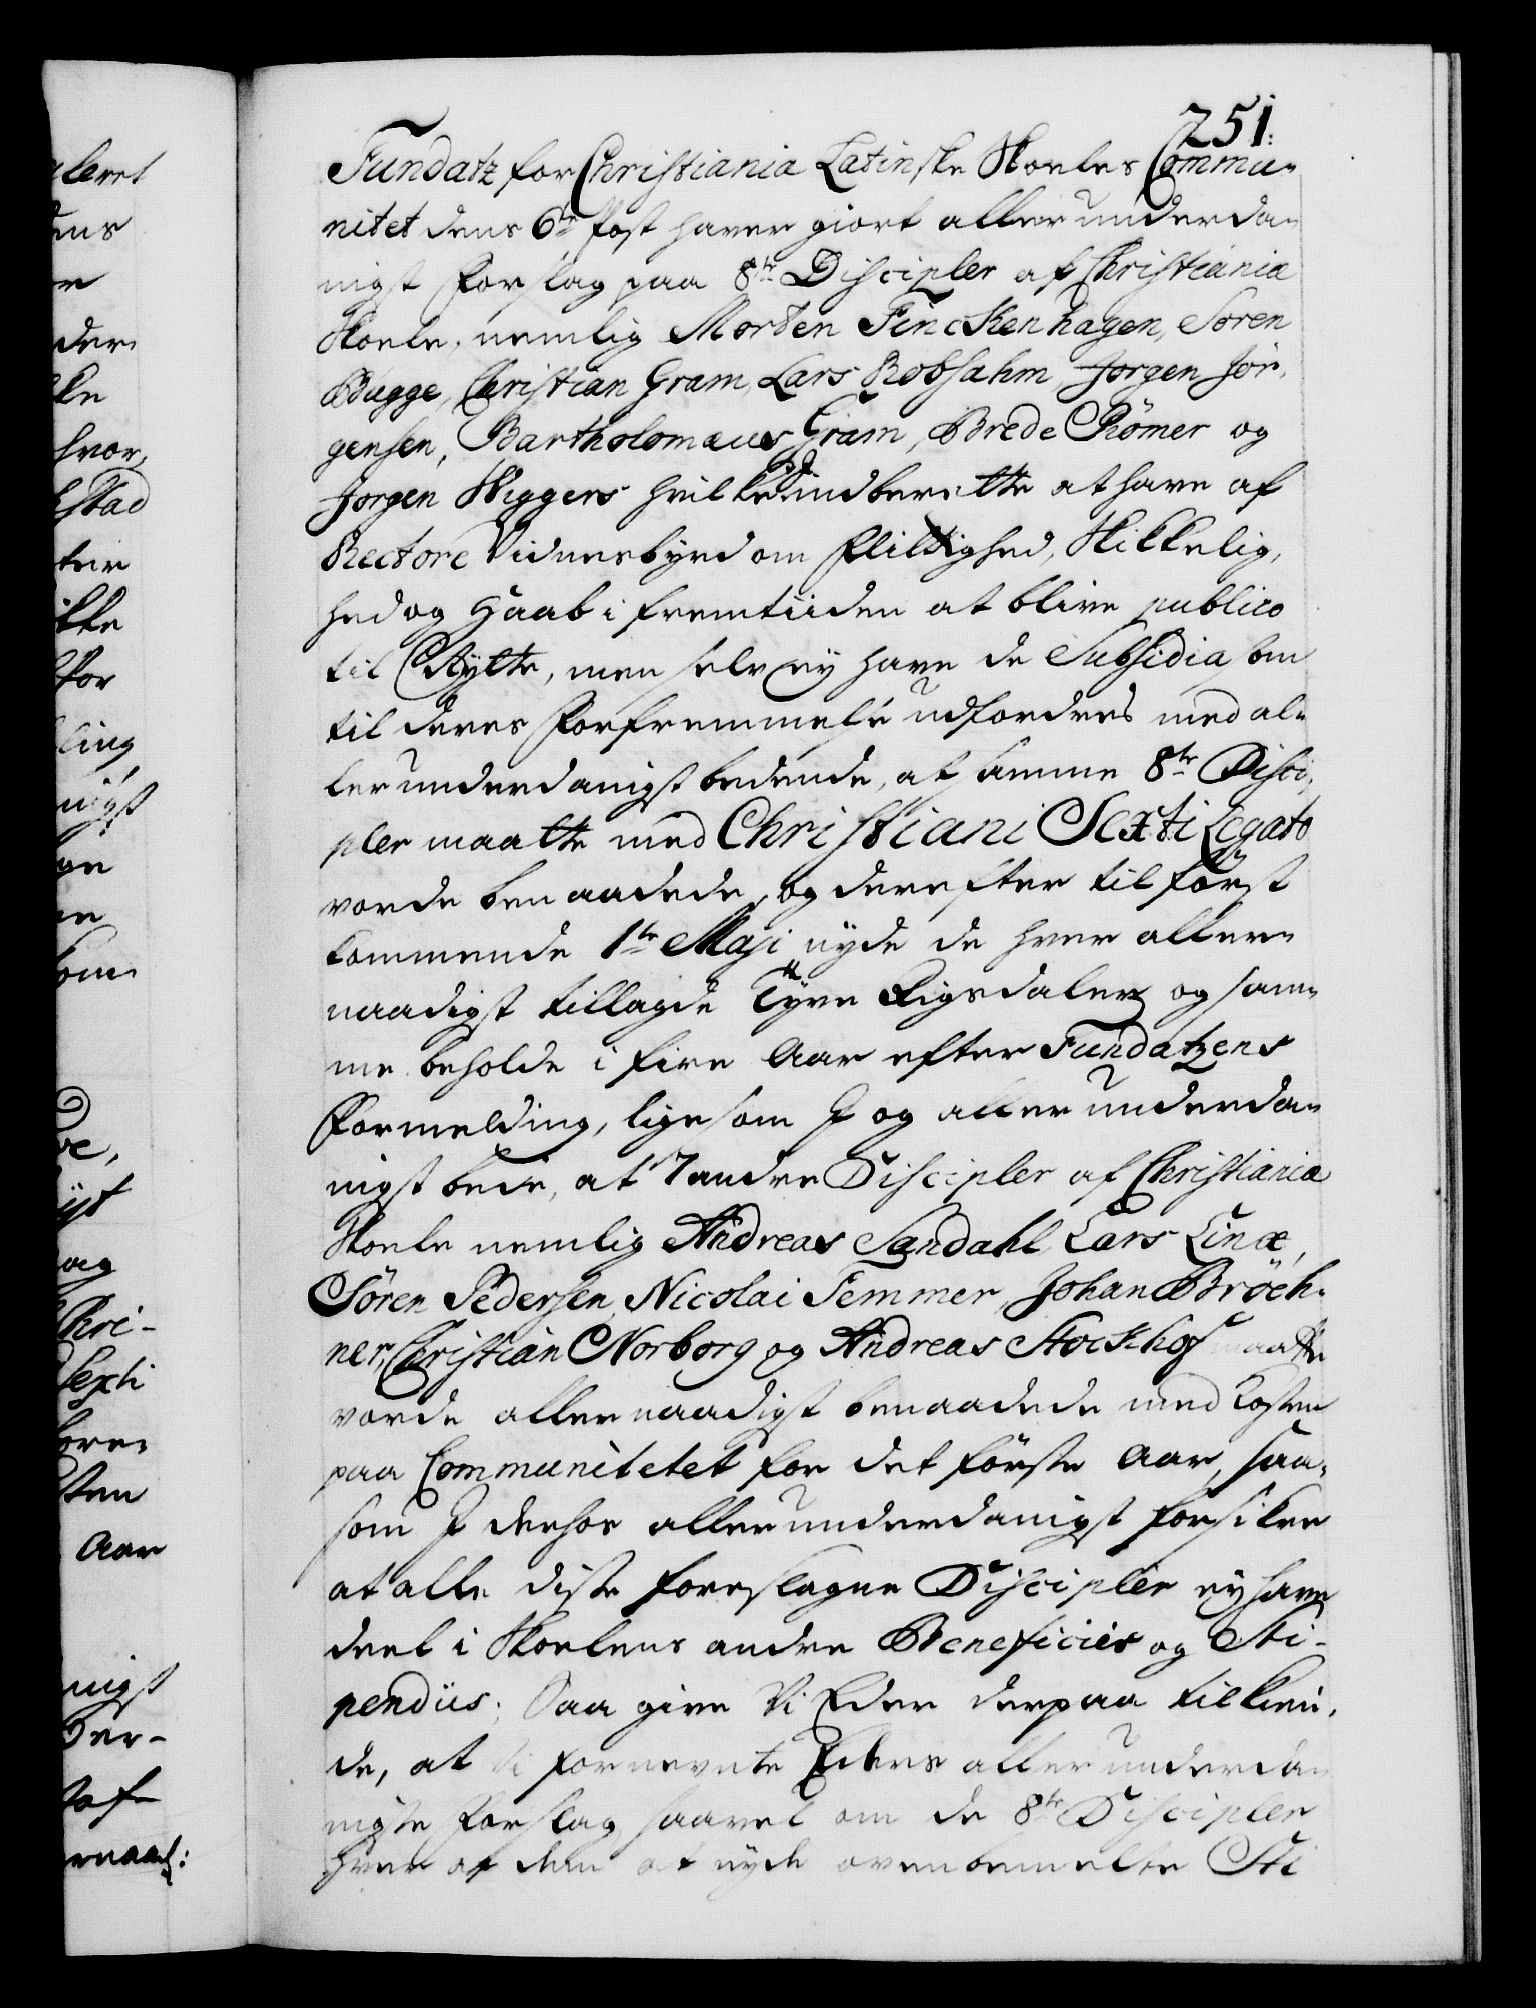 251.
Fundatz for Christiania Latinske Skoeles Commu-
nitet dens 6te Post haver giort allerunderda-
nigst Forslag paa 8te Discipler af Christiania
Skoele, nemlig Morten Finckenhagen, Søren
Bugge, Christian Gram, Lars Robsahm, Jørgen Jør-
gensen, Bartholomæus Gram, Brede Rømer og
Jørgen Wiggers hvilke I indberette at have af
Rectore Vidnesbyrd om Flittighed, Skikkelig-
hed og Haab i fremtiiden at blive publico
til Nytte, men selv ey have de Subsidia som
til deres Forfremmelse udfordres med al-
lerunderdanigst bedende, at samme 8te Disci-
pler maatte med Christiani Sexti Legato
vorde benaadede, og derefter til først
kommende 1te Maji nyde de hver aller-
naadigst tillagde Tyve Rigsdaler og sam-
me beholde i fire Aar efter Fundatzens
Formelding, ligesom I og allerunderda-
nigst bede, at 7 andre Discipler af Christiania
Skoele nemlig Andreas Sandahl Lars Linæ,
Søren Pedersen, Nicolai Femmer, Johan Brøch-
ner, Christian Norborg og Andreas Stockhof maatte
vorde allernaadigst benaadede med Kosten
paa Communitetet for det første Aar, saa-
som I derhos allerunderdanigst forsikrer
at alle disse foreslagne Discipler ey have
deel i Skoelens andre Beneficiis og Sti-
pendiis; Saa give Vi Eder derpaa tilkien-
de, at Vi fornevnte Eders allerunderda-
nigste Forslag saavel om de 8te Discipler
hver af dem at nyde ovenbemelte Sti